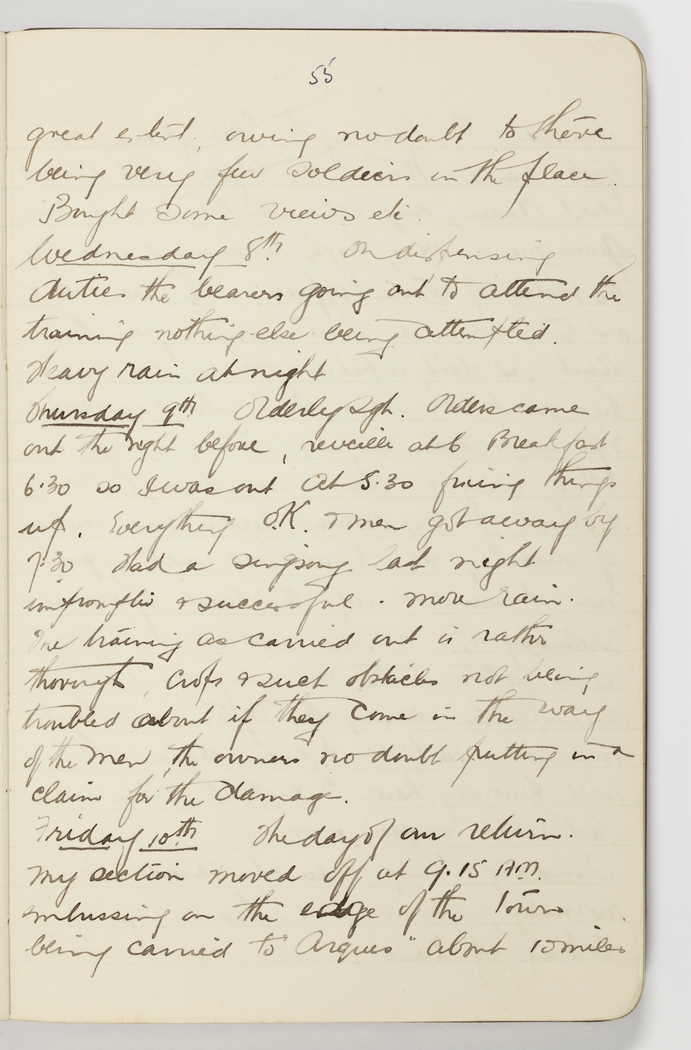 55
great extent, owing no doubt to there
being very few soldiers in the place.
Bought some views etc.
Wednesday 8th On dispensing
duties the bearers going out to attend the
training nothing else being attempted.
Heavy rain at night
Thursday 9th Orderly Sgt. Orders came
out the night before, reveille at 6 Breakfast
6.30 so I was out at 5.30 fixing things
up. Everything O.K. & men got away by
7.30 Had a singsong last night
impromptu & successful. more rain.
The training as carried out is rather
thorough, crops & such obstacles not being
troubled about if they come in the way
of the men, the owners no doubt putting in a
claim for the damage.
Friday 10th The day of our return.
My section moved off at 9.15 AM.
embussing on the edge of the town
being carried to "Arques" about 10 miles